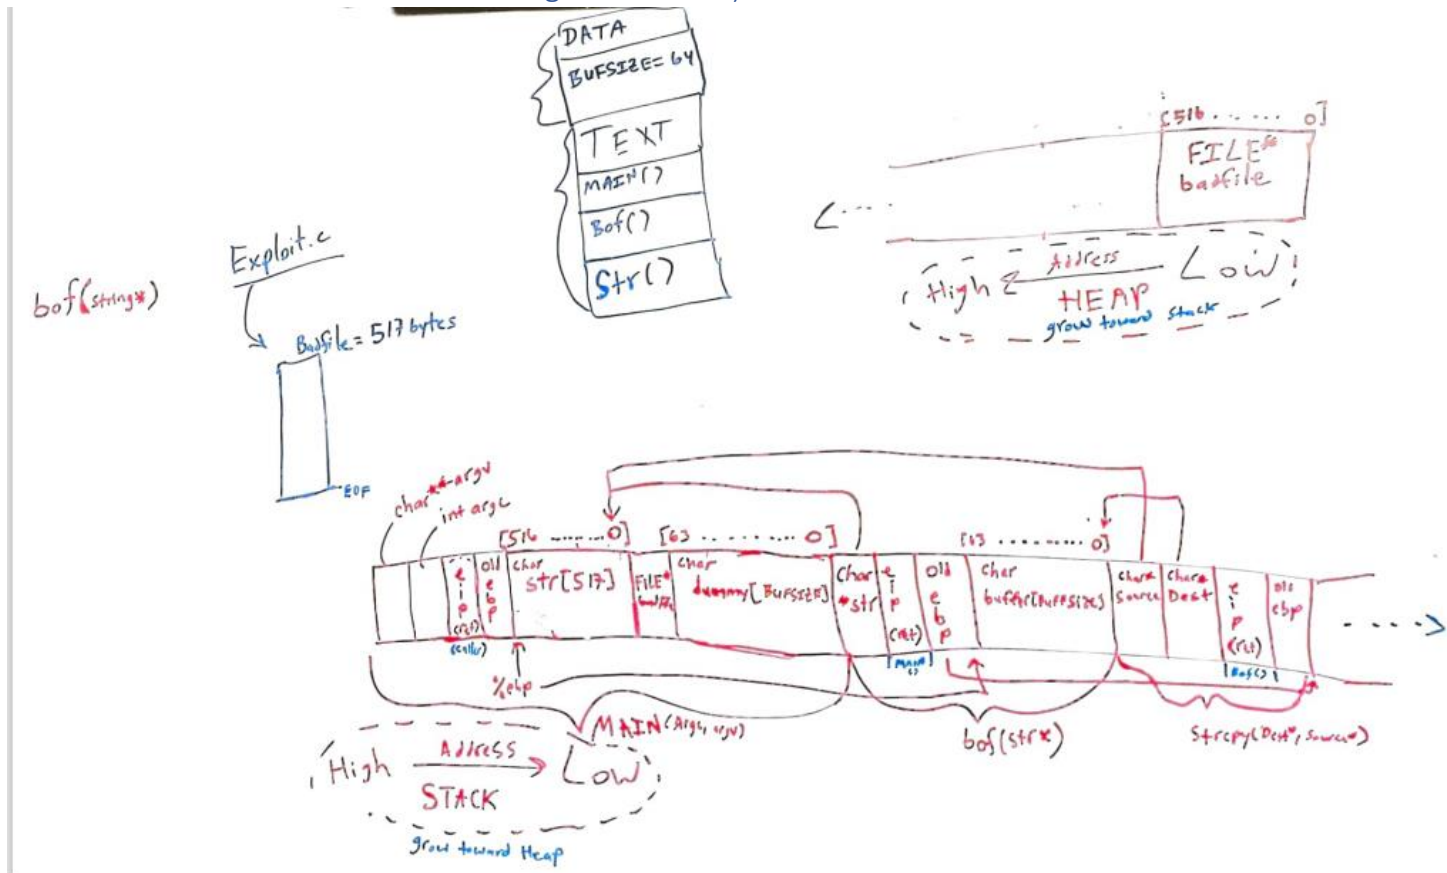 DATA
BUFSIZE= 64
TEXT
MAIN()
Bof()
Str()
[516 ...... 0]
FILE*
badfile
<....
Address
High Low
HEAP
grow toward stack
Exploit.c
bof(string*)
Badfile = 517 bytes
EOF
char**argv
int argc
[516 ...... 0] [63 ......... 0] [63 ......... 0]
eip (ret)
(caller)
old ebp
char
str[517]
FILE*
char
dummy[BUFSIZE]
char
*str
eip (ret)
[MAIN()]
old ebp
char
buffer[BUFFSIZE]
char*
Source
char*
Dest
eip (ret)
[Bof()]
old
ebp
.....>
%ebp
MAIN(Argc, argv)
bof(str*)
Strcpy(Dest*, source*)
Address
High Low
STACK
grow toward Heap